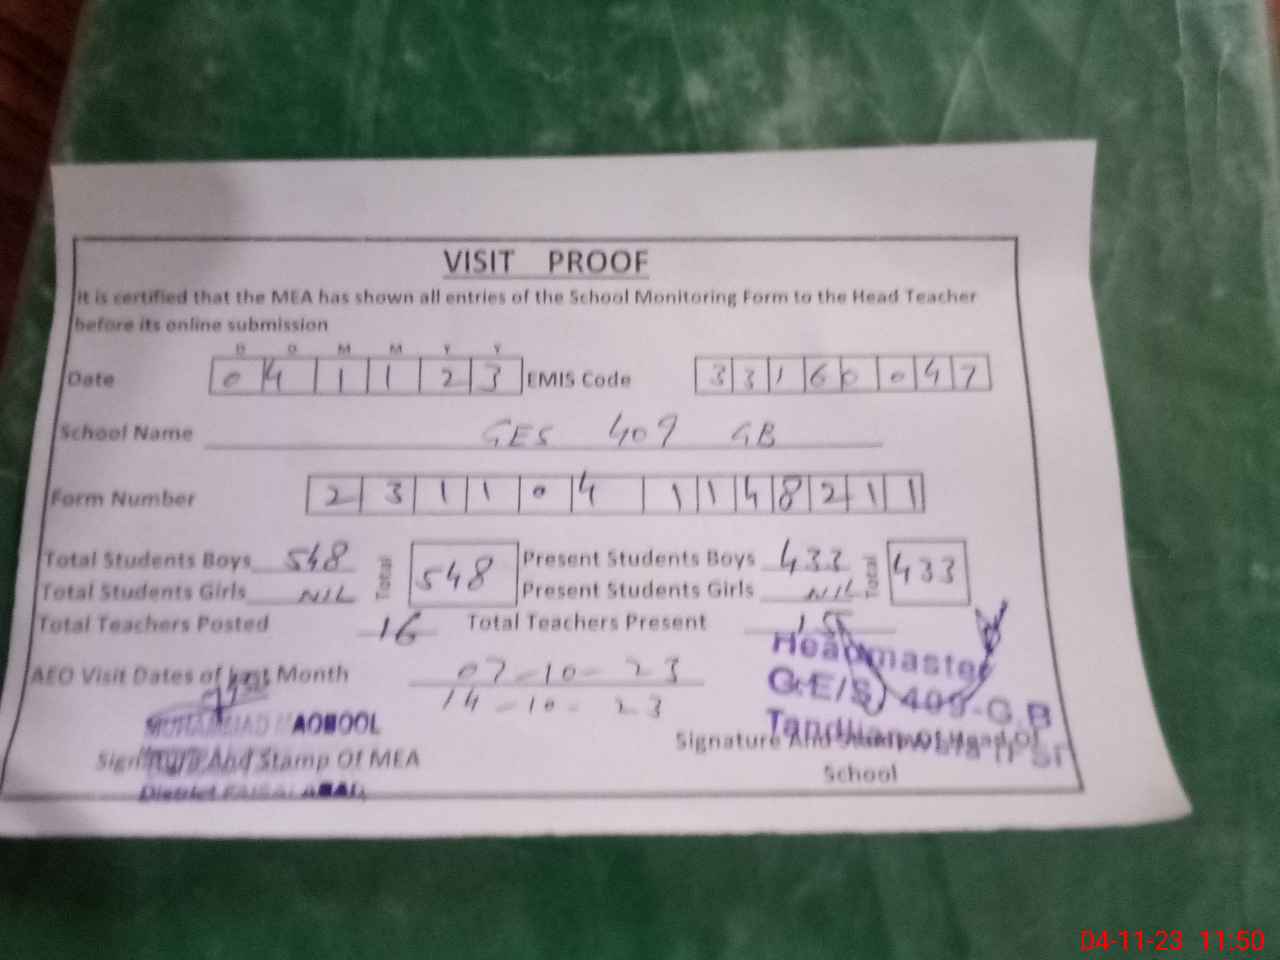 VISIT PROOF
It is certified that the MEA has shown all entries of the School Monitoring Form to the Head Teacher
before its online submission
D D M M Y Y
Date 0 4 1 1 2 3 EMIS Code 3 3 1 6 0 0 4 7
School Name GES 409 GB
Form Number 2 3 1 1 0 4 1 1 4 8 2 1 1
Total Students Boys 548 Total 548 Present Students Boys 433 Total 433
Total Students Girls NIL Present Students Girls NIL
Total Teachers Posted 16 Total Teachers Present 15
AEO Visit Dates of last Month 07-10-23
14-10-23
Headmaster
G.E/S) 409-G.B
MUHAMMAD MAQBOOL
Signature And Stamp Of MEA
District FAISALABAD
Signature And Stamp Of Head Of
School
04-11-23 11:50